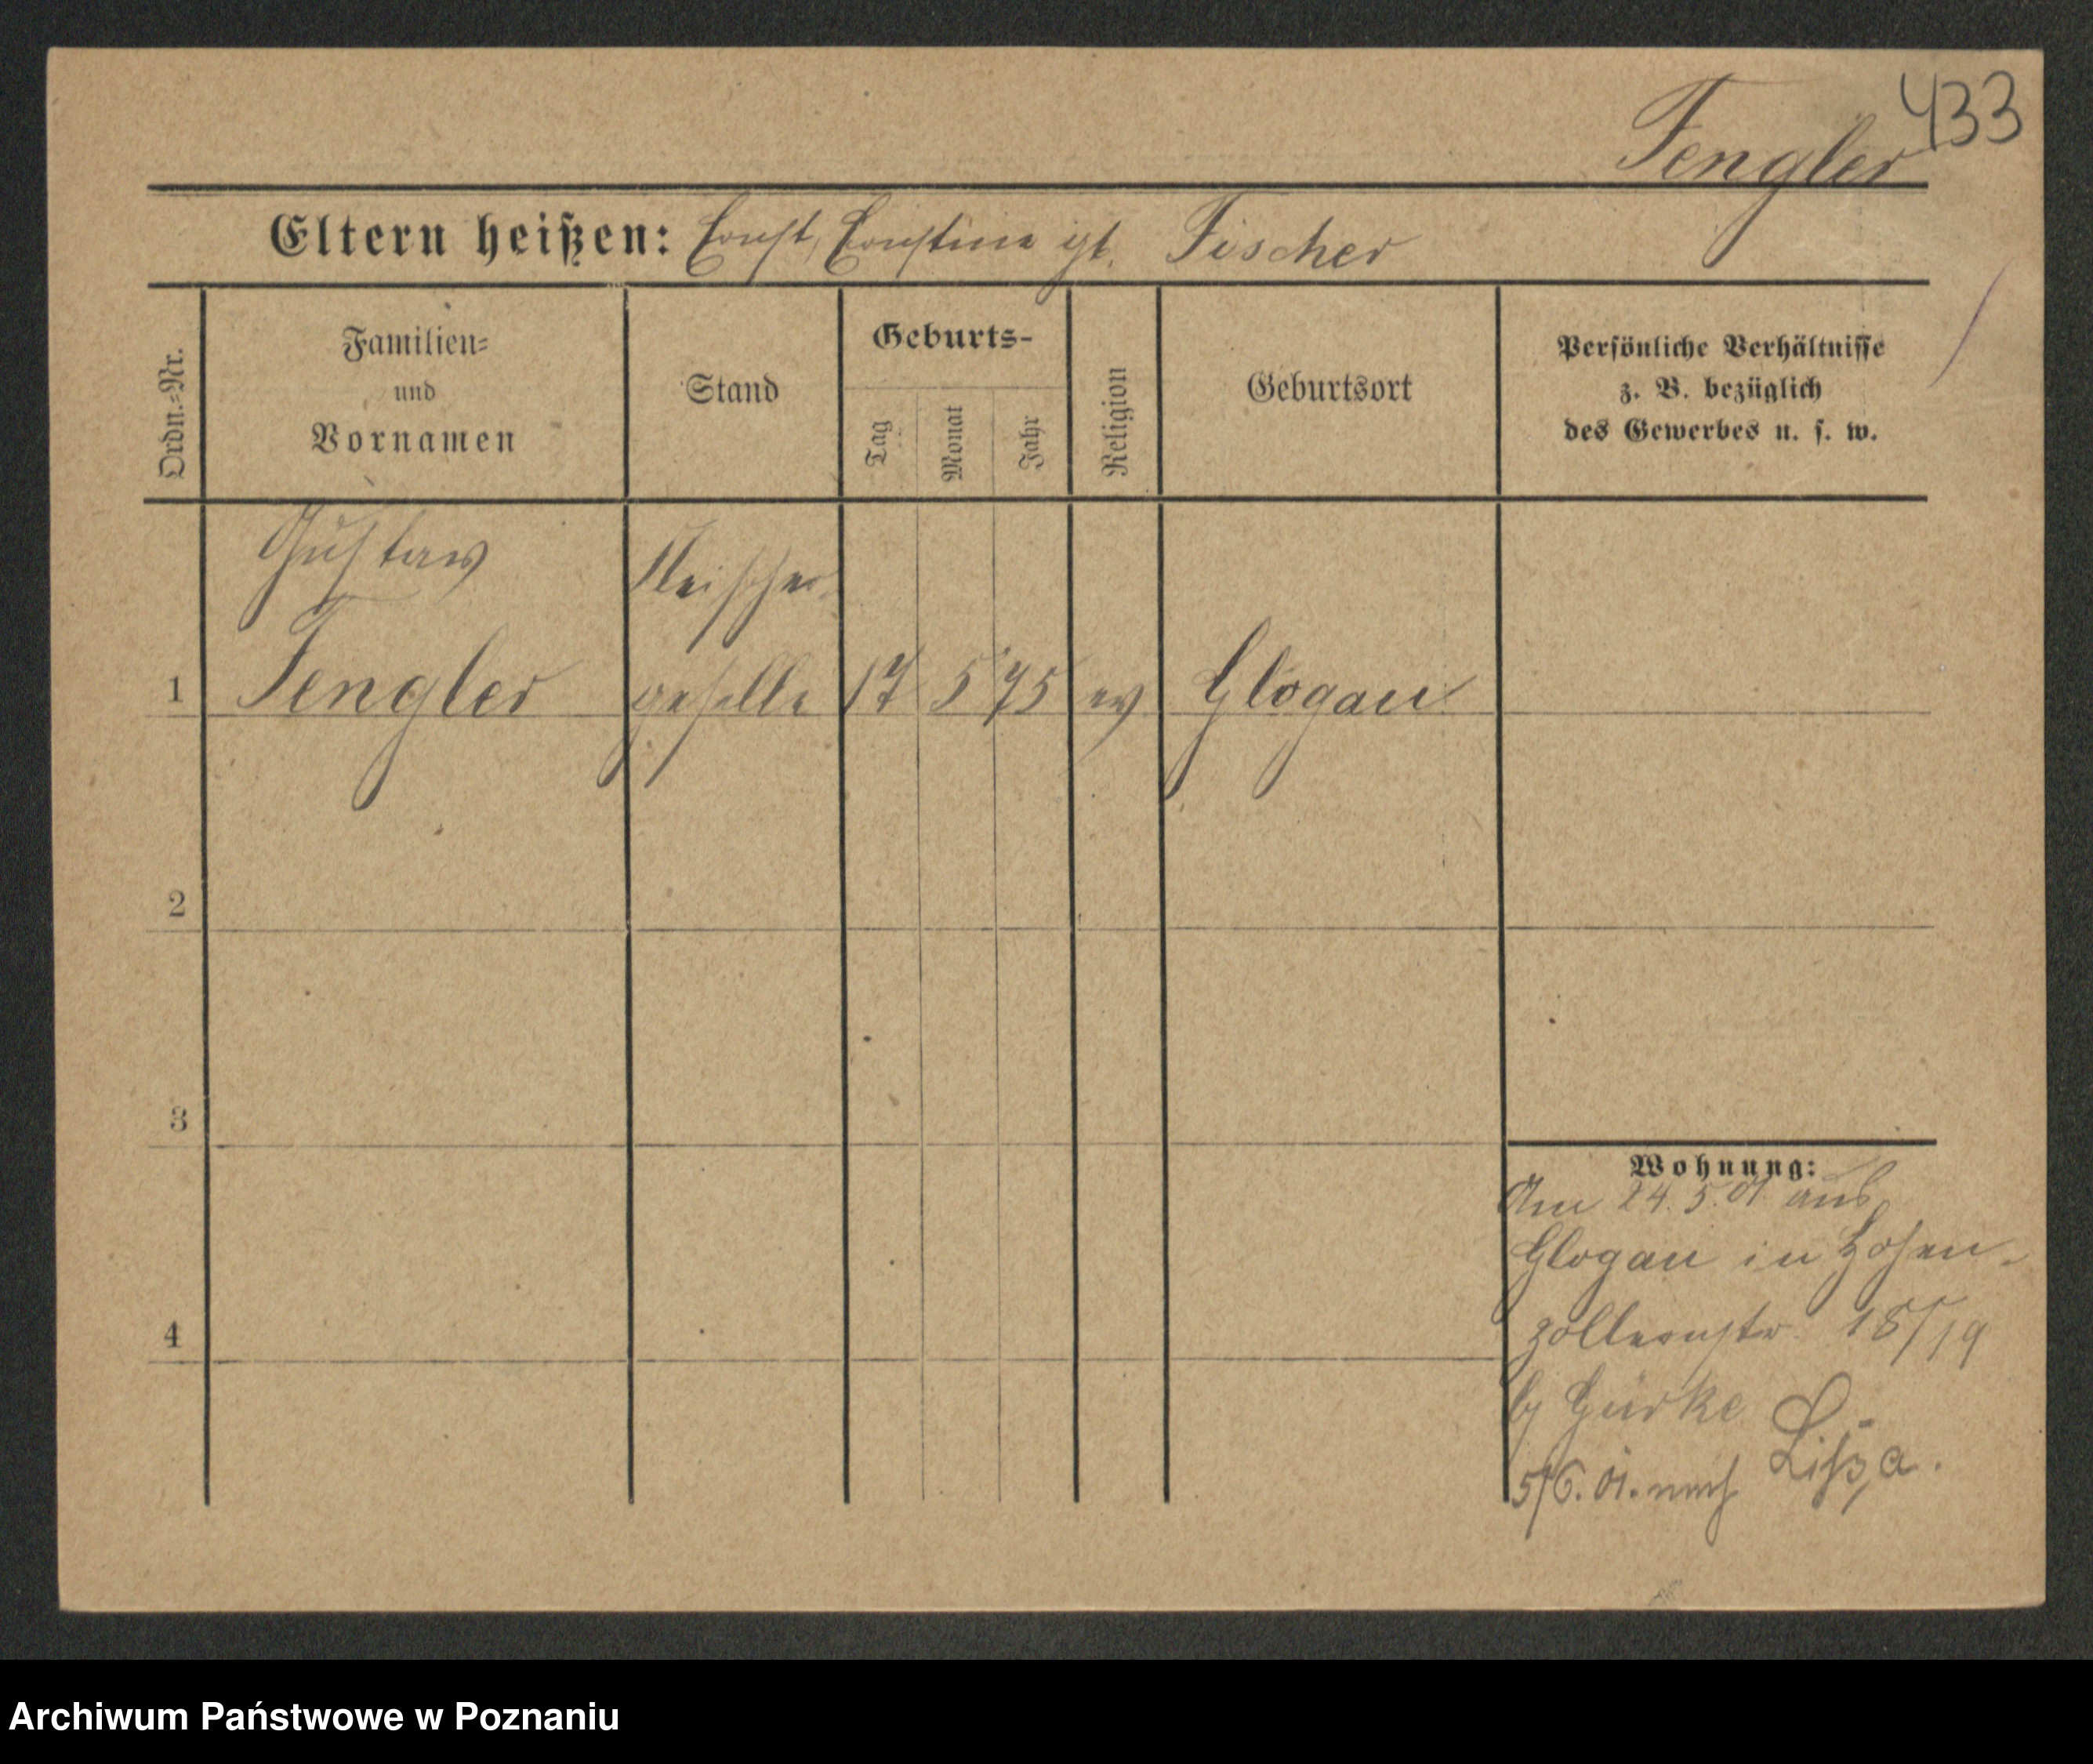 433
Fengler
Eltern heißen: Ernst, Ernstine gb. Fischer
Ordn.=Nr.
Familien=
und
Vornamen
Stand
Geburts-
Tag
Monat
Jahr
Religion
Geburtsort
Persönliche Verhältnisse
z. B. bezüglich
des Gewerbes u. s. w.
Gustav Fleischer
1 Fengler geselle 17 5 75 ev Glogau
2
3
4
Wohnung:
Am 24. 5. 01 aus
Glogau in Hohen-
zollernstr. 18/19
bj Gürke
5/6. 01. nach Lissa.
Archiwum Państwowe w Poznaniu